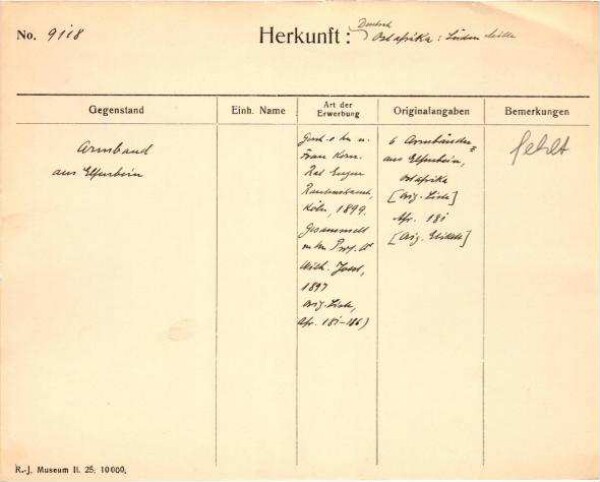 No. 9118 Herkunft: Deutsch Ostafrika: Süden
Gegenstand Einh. Name Art der Erwerbung Originalangaben Bemerkungen
Armband
aus Elfenbein
Gesch. v. Hn u.
Frau Kom.
Rat Eugen
Rautenstrauch,
Köln, 1899.
Gesammelt
v. Hn Prof. Dr
Wilh. Joest,
1897
Orig. Liste,
Afr. 181-186)
6 Armbänder
aus Elfenbein,
Ostafrika
[Orig. Liste]
Afr. 181
[Orig. Etikett]
fehlt
R.-J. Museum II. 25. 10000.